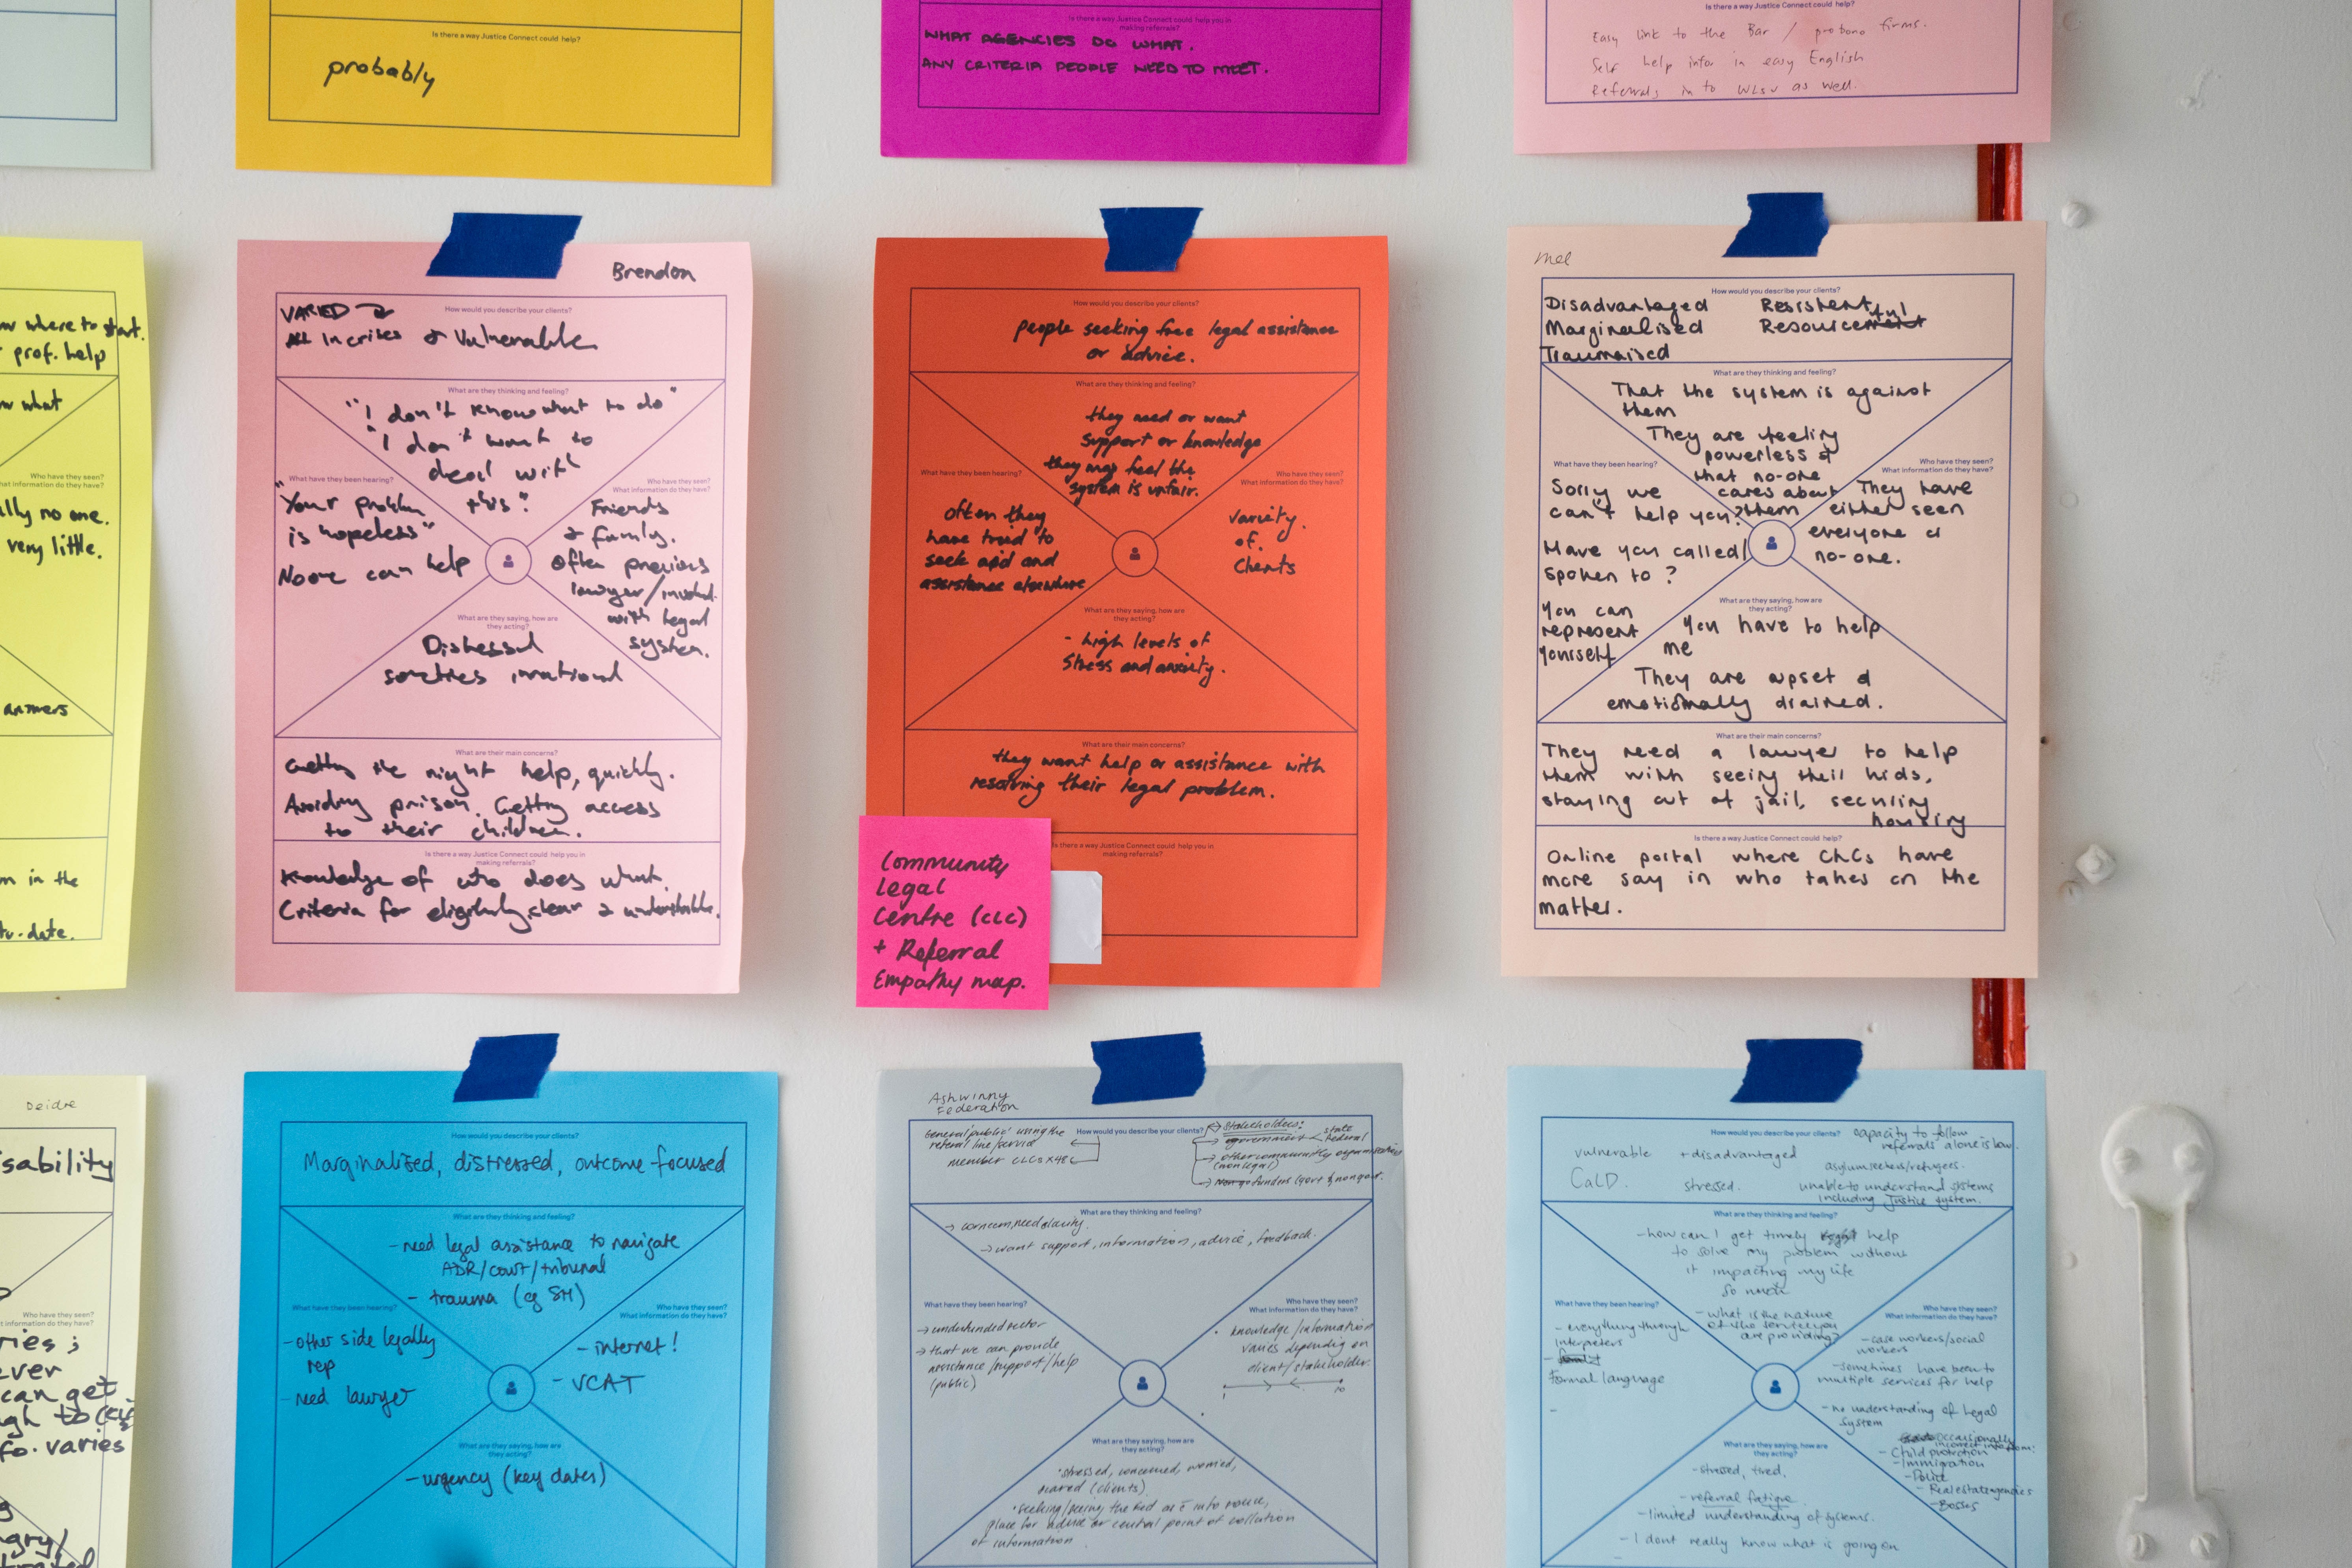 Is there a way Justice Connect could help?
probably
Is there a way Justice Connect could help you in
making referrals?
WHAT AGENCIES DO WHAT.
ANY CRITERIA PEOPLE NEED TO MEET.
Is there a way Justice Connect could help?
Easy link to the Bar / probono firms.
Self help infor in easy English
Referrals in to WLSV as well.
where to start.
prof. help
what
Who have they seen?
What information do they have?
no one.
very little.
answers
in the
Brendon
How would you describe your clients?
VARIED
All In crises & Vulnerable
What are they thinking and feeling?
"I don't know what to do"
"I don't want to
deal with
this."
What have they been hearing?
"Your problem
is hopeless"
Noone can help
Who have they seen?
What information do they have?
Friends
& family.
Often previous
lawyer/
with legal
system.
What are they saying, how are
they acting?
Distressed
irrational
What are their main concerns?
Getting the right help, quickly.
Avoiding prison. Getting access
to their children.
Is there a way Justice Connect could help you in
making referrals?
Knowledge of who does what.
Criteria for eligibility, clear &
How would you describe your clients?
people seeking free legal assistance
or advice.
What are they thinking and feeling?
they need or want
support or knowledge
they may feel the
system is unfair.
What have they been hearing?
Often they
have tried to
seek aid and
assistance elsewhere
Who have they seen?
What information do they have?
variety
of
clients
What are they saying, how are
they acting?
- high levels of
stress and anxiety.
What are their main concerns?
they want help or assistance with
resolving their legal problem.
Is there a way Justice Connect could help you in
making referrals?
Community
Legal
Centre (CLC)
+ Referral
Empathy map.
Mel
How would you describe your clients?
Disadvantaged Resistent
Marginalised Resourceful
Traumaised
What are they thinking and feeling?
That the system is against
them
They are feeling
powerless &
that no-one
cares about
them
What have they been hearing?
Sorry we
can't help you?
Have you called/
spoken to?
You can
represent
yourself
Who have they seen?
What information do they have?
They have
either seen
everyone or
no-one.
What are they saying, how are
they acting?
You have to help
me
They are upset &
emotionally drained.
What are their main concerns?
They need a lawyer to help
them with seeing their kids,
staying out of jail, securing
housing
Is there a way Justice Connect could help?
Online portal where CLCs have
more say in who takes on the
matter.
Deidre
Who have they seen?
What information do they have?
can get
varies
How would you describe your clients?
Marginalised, distressed, outcome focused
What are they thinking and feeling?
- need legal assistance to navigate
ADR/court/tribunal
- trauma (eg SH)
What have they been hearing?
- other side legally
rep
- need lawyer
Who have they seen?
What information do they have?
- internet!
- VCAT
What are they saying, how are
they acting?
- urgency (key dates)
Ashwinny
Federation
How would you describe your clients?
General 'public' using the
referral line/service
member CLCs x48
Stakeholders:
government state
federal
→ other community organisations
(non legal)
→ funders (govt & nongovt.
What are they thinking and feeling?
→ concern, need clarity
→ want support, information, advice, feedback.
What have they been hearing?
→ underfunded sector
→ that we can provide
assistance/support/help
(public)
Who have they seen?
What information do they have?
knowledge/information
varies depending on
client/stakeholder.
1 10
What are they saying, how are
they acting?
• stressed, concerned, worried,
scared (clients)
place for advice or central point of collation
of information
How would you describe your clients?
capacity to follow
referrals alone is low.
vulnerable + disadvantaged
asylum seekers/refugees.
CaLD. stressed.
unable to understand systems
including Justice system.
What are they thinking and feeling?
- how can I get timely help
to solve my problem without
it impacting my life
so much
- what is the nature
of the service you
are providing?
What have they been hearing?
- everything through
interpreters
Formal language
Who have they seen?
What information do they have?
- case workers/social
workers
- sometimes have been to
multiple services for help
- no understanding of legal
system
occasionally
incorrect info from:
- Child protection
- Immigration
- Police
- Real estate agencies
- Bosses
What are they saying, how are
they acting?
- stressed, tired.
- referral fatigue
- limited understanding of systems.
- I dont really know what is going on